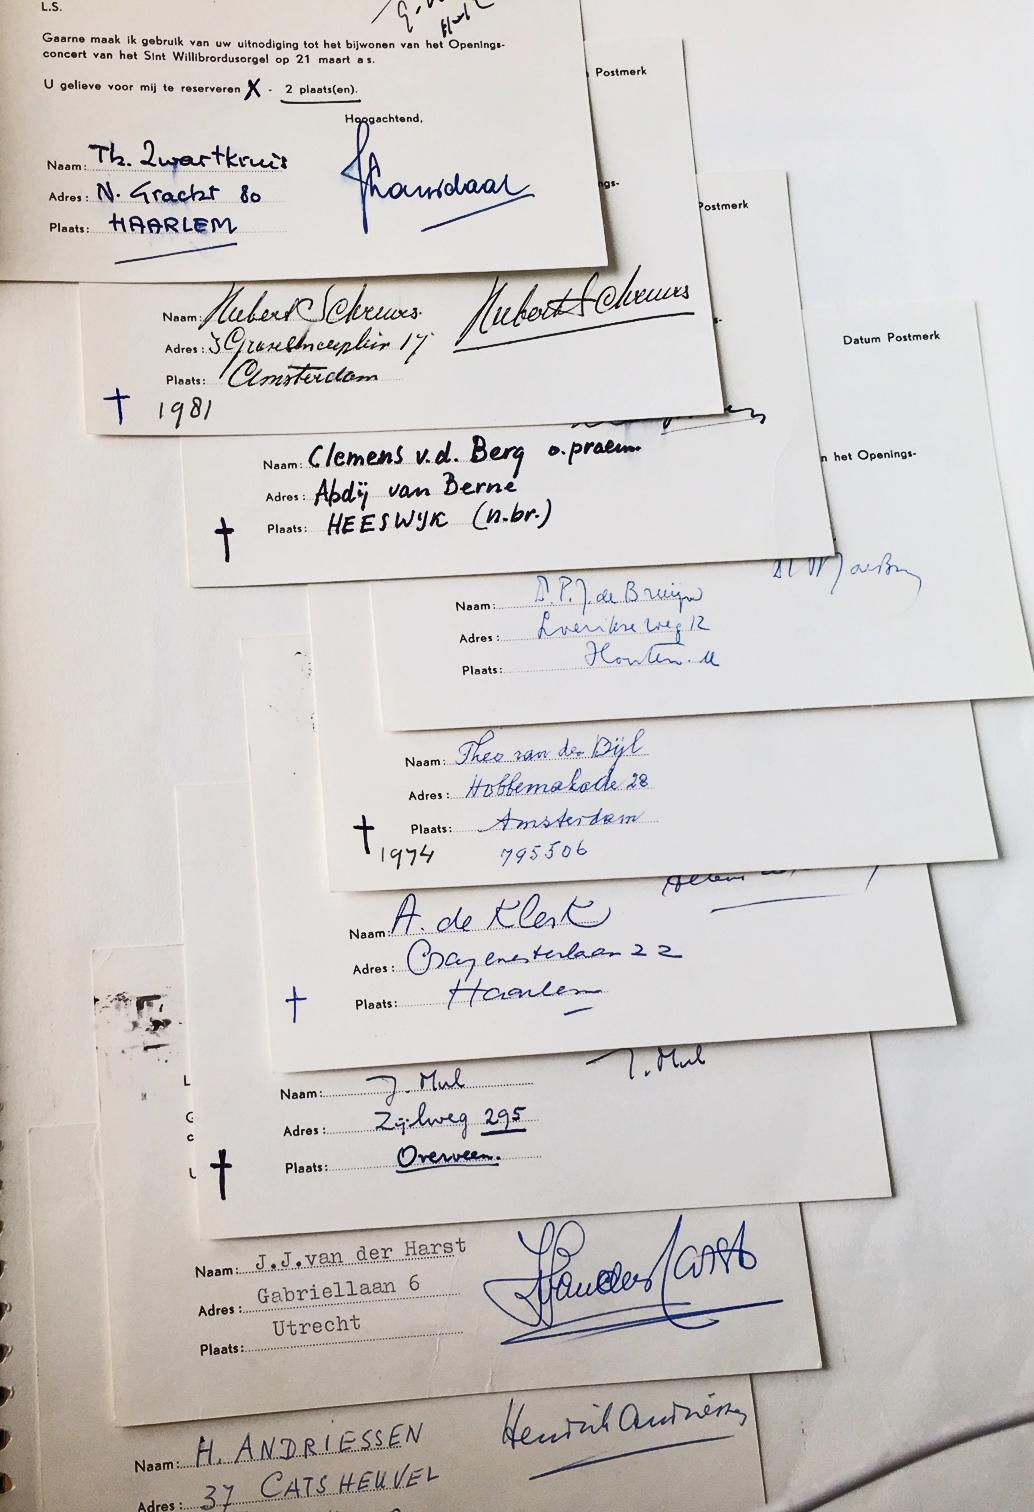 L.S.
Gaarne maak ik gebruik van uw uitnodiging tot het bijwonen van het Openings-
concert van het Sint Willibrordusorgel op 21 maart a s.
U gelieve voor mij te reserveren X - 2 plaats(en).
Hoogachtend,
Naam: Th. Zwartkruis
Adres: N. Gracht 80
Plaats: HAARLEM
Postmerk
ngs-
Postmerk
Naam: Hubert Schreurs. Hubert Schreurs
Adres: 17
Plaats: Amsterdam
† 1981
s-
Datum Postmerk
n het Openings-
Naam: Clemens v.d. Berg o.praem.
Adres: Abdij van Berne
† Plaats: HEESWYK (N.br.)
Naam: D.P.J. de Bruijn
Adres: Loerikseweg 12
Plaats: Houten. U
Naam: Theo van der Bijl
Adres: Hobbemakade 28
Plaats: Amsterdam
† 1974 795506
Naam: A. de Klerk
Adres: 22
† Plaats: Haarlem
Naam: J. Mul J. Mul
Adres: Zijlweg 295
† Plaats: Overveen.
Naam: J.J.van der Harst
Adres: Gabriellaan 6
Plaats: Utrecht
Naam: H. ANDRIESSEN Hendrik Andriessen
Adres: 37 CATSHEUVEL